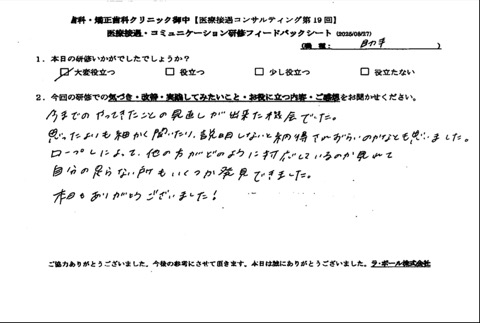 歯科・矯正歯科クリニック御中【医療接遇コンサルティング第19回】
医療接遇・コミュニケーション研修フィードバックシート (2025/08/27)
(職種: 助手)
1.本日の研修いかがでしたでしょうか?
☑大変役立つ □役立つ □少し役立つ □役立たない
2.今回の研修での気づき・改善・実践してみたいこと・お役に立つ内容・ご感想をお聞かせください。
今までのやってきたことの見直しが出来た機会でした。
思ったよりも細かく聞いたり、説明しないと納得されづらいのかなとも思いました。
ロープレによって、他の方がどのように対応しているのか見れて
自分の足らない所もいくつか発見できました。
本日もありがとうございました!
ご協力ありがとうございました。今後の参考にさせて頂きます。本日は誠にありがとうございました。ラ・ポール株式会社